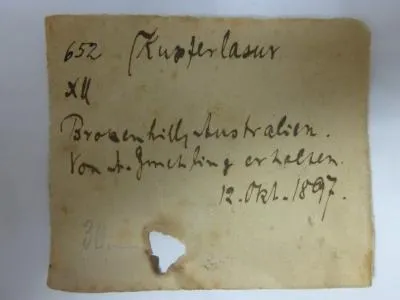 652 Kupferlasur
XII
Brokenhill, Australien.
Von A. erhalten.
12. Okt. 1897.
30